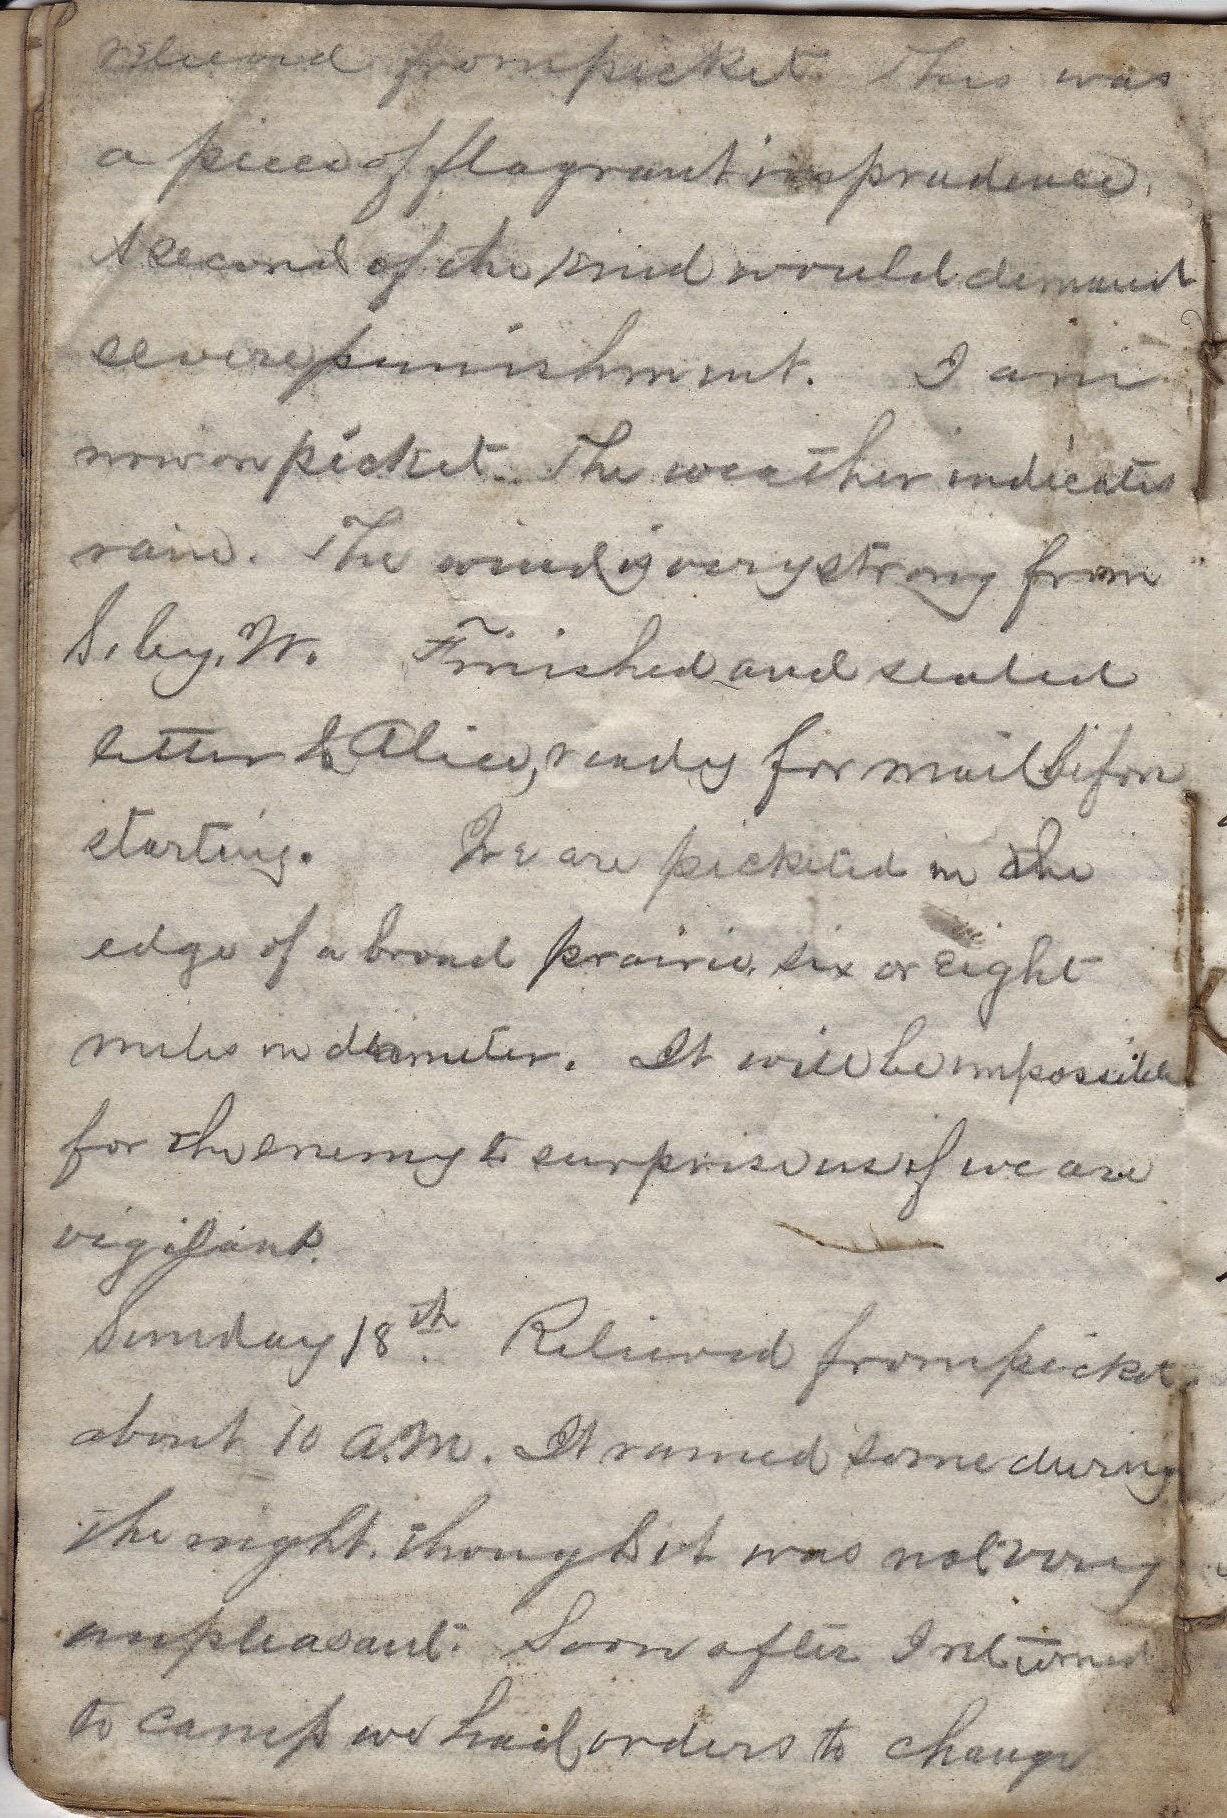 relieved from picket. This was
a piece of flagrant imprudence.
A second of the kind would demand
severe punishment. I am
now on picket. The weather indicates
rain. The wind is very strong from
S. by. W. Finished and sealed
letter to Alice, ready for mail before
starting. We are picketed in the
edge of a broad prairie, six or eight
miles in diameter. It will be impossible
for the enemy to surprise us if we are
vigilant.
Sunday 18th. Relieved from picket
about 10 A.M. It rained some during
the night, though it was not very
unpleasant. Soon after I returned
to camp we had orders to change